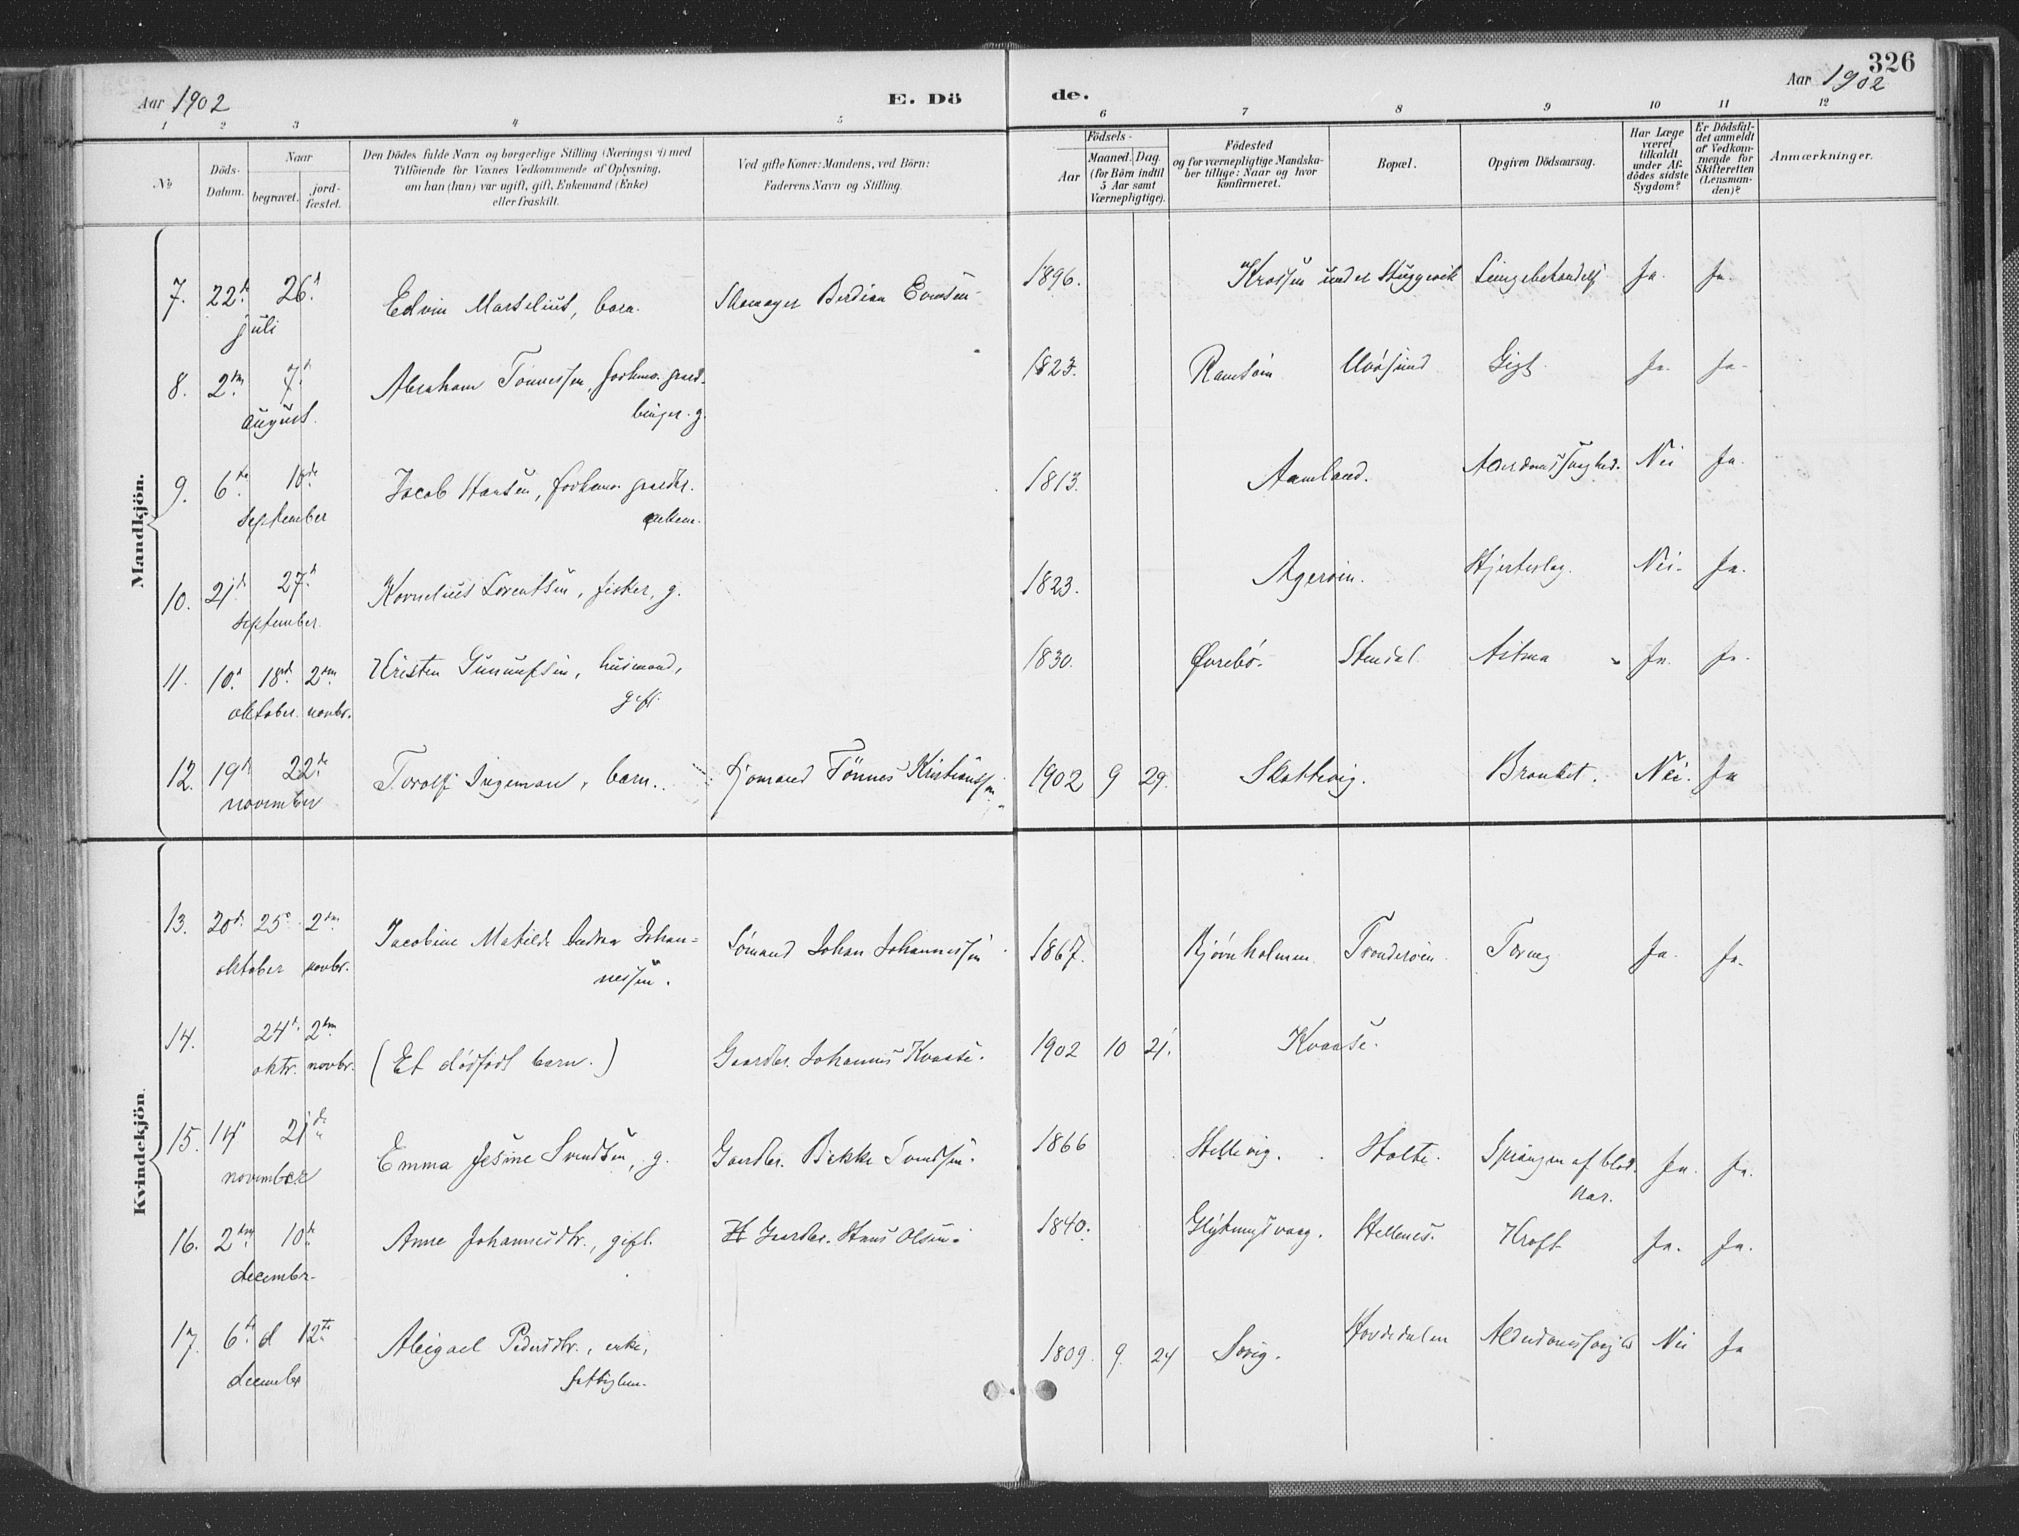 326
Aar 1902 E. Dö de. Aar 1902
1 2 3 4 5 6 7 8 9 10 11 12
№ Döds-Datum. Naar begravet. jordfæstet.
Den Dödes fulde Navn og borgerlige Stilling (Næringsvei) med
Tilföiende for Voxnes Vedkommende af Oplysning,
om han (hun) var ugift, gift, Enkemand (Enke)
eller fraskilt.
Ved gifte Koner: Mandens, ved Börn:
Faderens Navn og Stilling.
Födsels-
Aar Maaned. Dag.
(for Börn indtil
5 Aar samt
Værnepligtige).
Födested
og for værnepligtige Mandskaber tillige: Naar og hvor
konfirmeret.
Bopæl.
Opgiven Dödsaarsag.
Har Læge
været
tilkaldt
under Afdödes sidste
Sygdom?
Er Dödsfaldet anmeldt
af Vedkommende for
Skifteretten
(Lensmanden)?
Anmærkninger.
Mandkjön.
7. 22d 26d Edvin Marselius, barn. Skomager Berdian Evensen 1896. Krossen under Stuggevik Ja. Ja.
juli
8. 2den 7d Abraham Tønnessen, forhenv. gaard- 1823. Ramsøin Gigt. Ja. Ja.
august. bruger. g.
9. 6te 10de Jacob Hansen, forhenv. gaardbr. 1813. Aamland. Alderdomssvaghed. Nei Ja.
september enkem.
10. 21d 27d Kornelius Lorentsen, fisker, g. 1823. Agerøin. Hjerteslag. Nei. Ja.
september.
11. 10d 18d 2den Kristen Gunnufsen, husmand, 1830. Øvrebø. Stendal. Astma Ja. Ja.
oktober. novbr. gift.
12. 19d 22de Torolf Ingeman, barn. Sjømand Tønnes Kristianssen 1902 9 29. Skottevig. Bronket. Nei. Ja
november
Kvindekjön.
13. 20d 25d 2den Jacobine Matilde Andrea Johan- Sømand Johan Johannessen 1867. Bjørnholmen Trønderøin. Tæring Ja. Ja.
oktober novbr. nessen.
14. 24d 2den (Et dødfødt barn.) Gaardbr. Johannes Kvaase. 1902 10 21. Kvaase.
oktr. novbr.
15. 14d 21de Emma Jesine Svendsen, g. Gaardbr. Bekke Svendsen. 1866 Hellevig. Holte. Sprængen af blod- Ja. Ja.
november kar.
16. 2den 10de Anne Johannesdtr., gift. Gaardbr. Hans Olsen. 1840. Hellenes. Kræft Ja. Ja.
decembr.
17. 6te d 12te Abigael Pedersdtr., enke, 1809. 9. 24 Hovdedalen Alderdomssvaghd Nei Ja
december fattiglem.